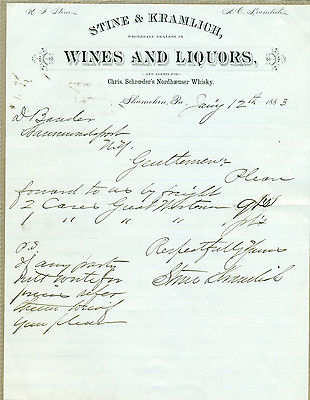 H. F. Stine
A. C. Kramlich
STINE & KRAMLICH,
WHOLESALE DEALERS IN
WINES AND LIQUORS,
AND AGENTS FOR
Chris. Schrœder's Nordhæuser Whisky.
Shamokin, Pa. Jany 12th 1883
D Bauder
Hammondsport
N.Y.
Gentlemen
Please
forward to us by freight
2 Cases Great Western qts
1 " " " pts
Respectfully Yours
Stine & Kramlich
P.S.
if any parties
write for
prices refer
them to us
you please